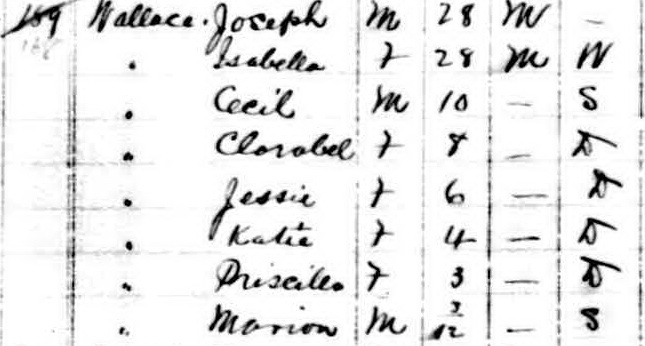 159 Wallace. Joseph M 28 M –
168 " Isabella F 28 M W
" Cecil M 10 – S
" Clarabel F 8 – D
" Jessie F 6 – D
" Katie F 4 – D
" Priscilla F 3 – D
" Marion M 3/12 – S